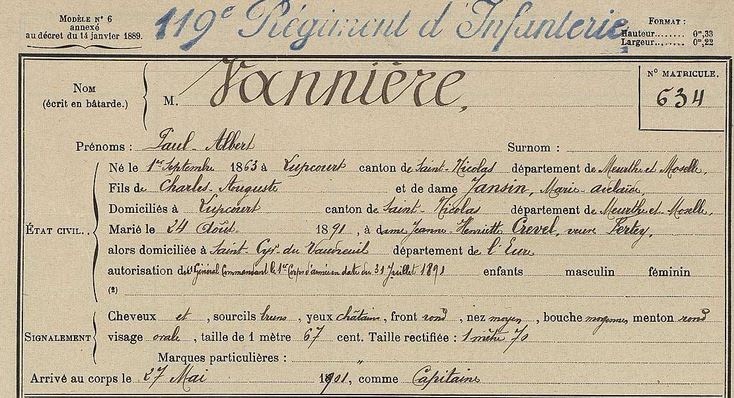 MODÈLE N° 6
annexé
au décret du 14 janvier 1889.
119e Régiment d'Infanterie
FORMAT :
Hauteur....... 0m,33
Largeur....... 0m,22
NOM
(écrit en bâtarde.)
M. Vannière,
N° MATRICULE.
634
Prénoms : Paul-Albert Surnom :
ÉTAT CIVIL.
Né le 1er Septembre 1863 à Lupcourt canton de Saint-Nicolas département de Meurthe et Moselle,
Fils de Charles-Auguste et de dame Jansin, Marie-
Domiciliés à Lupcourt canton de Saint-Nicolas département de Meurthe et Moselle,
Marié le 24 Août 1891, à dame Jeanne Henriette Crevel, veuve Fertey,
alors domiciliée à Saint-Cyr du Vaudreuil département de l'Eure
autorisation du Général Commandant le 1er Corps d'armée en date du 31 Juillet 1891 enfants masculin féminin
(2)
SIGNALEMENT
Cheveux et, sourcils bruns, yeux châtains, front rond, nez moyen, bouche moyenne, menton rond
visage ovale, taille de 1 mètre 67 cent. Taille rectifiée : 1 mètre 70
Marques particulières : "
Arrivé au corps le 27 Mai 1901, comme Capitaine